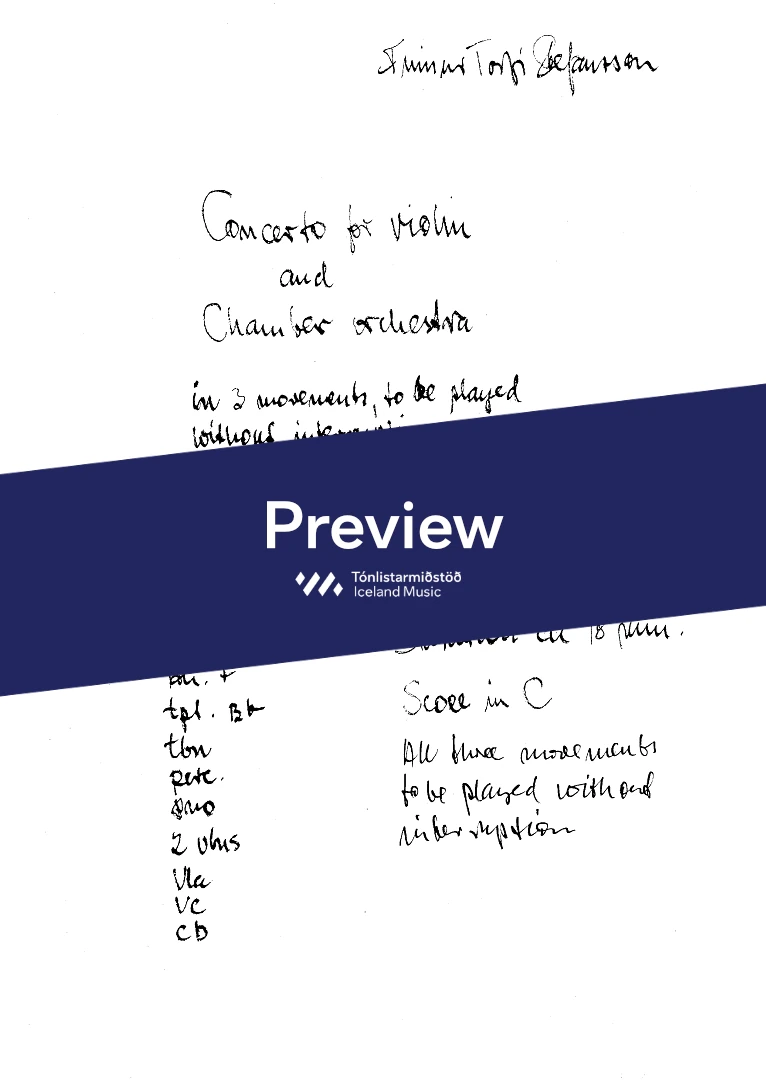 Finnur Torfi Stefánsson
Concerto for violin
and
Chamber orchestra
in 3 movements, to be played
without
Preview
Tónlistarmiðstöð
Iceland Music
Duration ca 18 min.
tpt. Bb
tbn
perc.
pno
2 vlns
Vla
VC
cb
Score in C
All three movements
to be played without
interruption